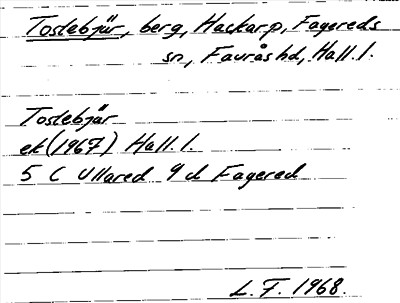 Toslebjär, berg, Hackarp, Fagereds
sn, Faurås hd, Hall. l.
Toslebjär
ek (1967) Hall. l.
5 C Ullared 9 d Fagered
L. F. 1968.